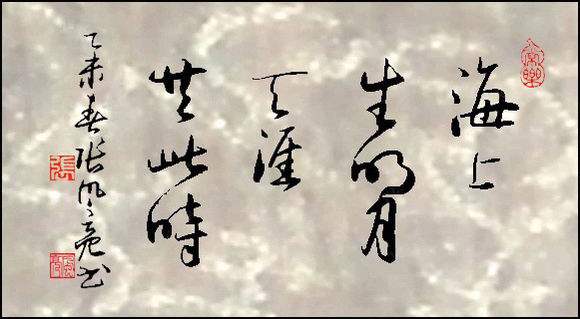 海上
生明月
天涯
共此時
乙未春張亮书
張